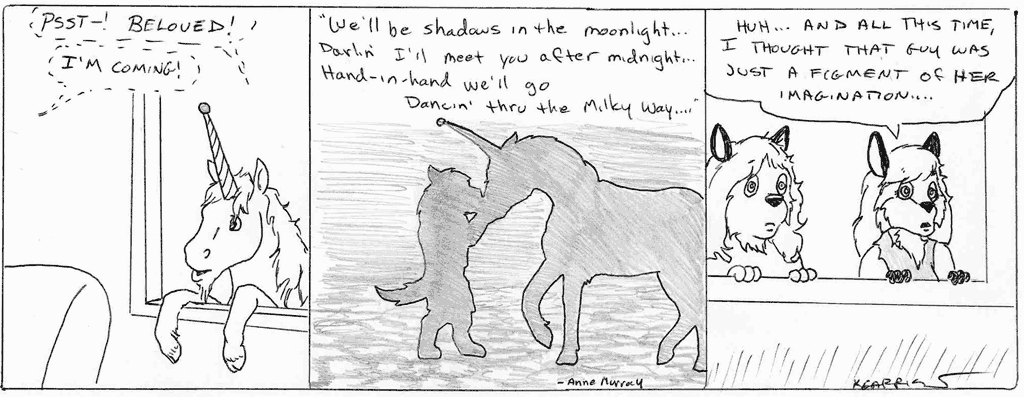 PSST-! BELOVED!
I'M COMING!
"We'll be shadows in the moonlight...
Darlin' I'll meet you after midnight...
Hand-in-hand we'll go
Dancin' thru the Milky Way...."
- Anne Murray
HUH... AND ALL THIS TIME,
I THOUGHT THAT GUY WAS
JUST A FIGMENT OF HER
IMAGINATION....